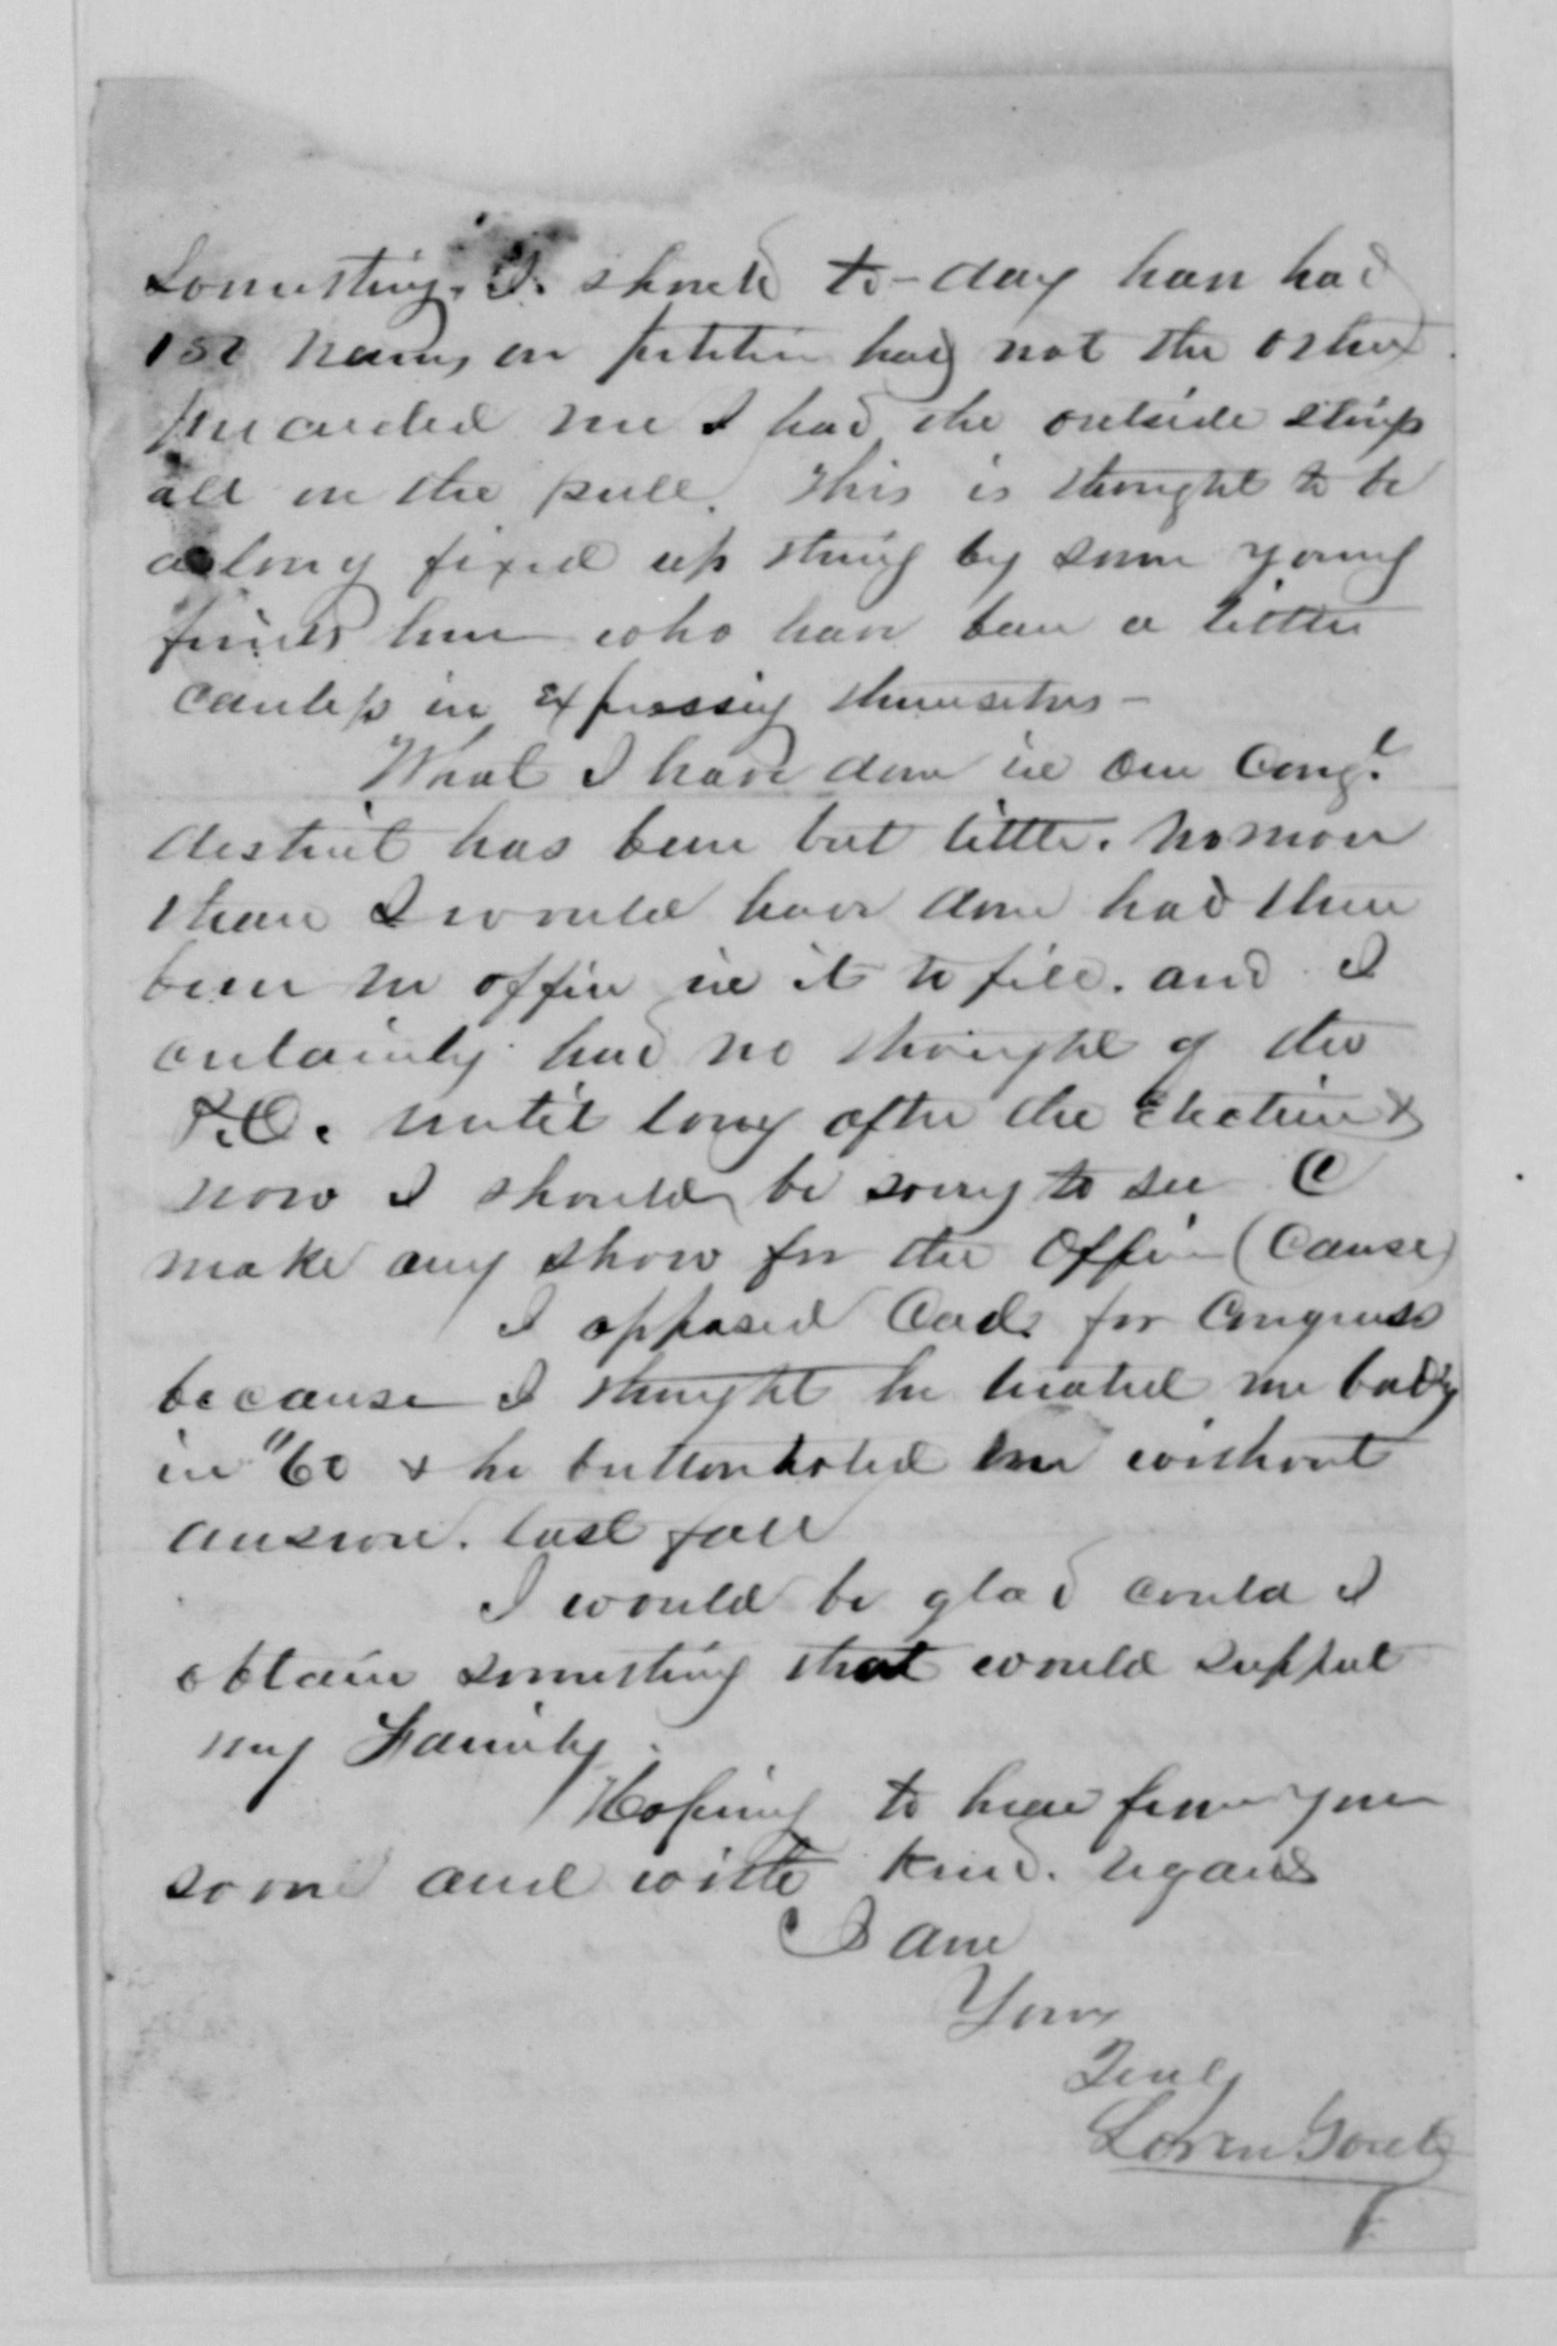 Something. I should to-day have had
1st name, on petition had not the other
preceeded me I had the outside strips
all in the pull. This is thought to be
a long fixed up thing by some young
friends here who have been a little
careless in expressing themselves -
What I have done in our Congl
district has been but little. no more
than I would have done had there
been no office in it to fill. and I
certainly had no thought of the
P.O. until long after the Election &
now I should be sorry to see C
make any show for the Office (Cause)
I opposed Cad. for Congress
because I thought he treated me badly
in "60 & he buttonholed me without
answer. last fall
I would be glad could I
obtain something that would support
my Family.
Hoping to hear from you
soon and with kind regards
I am
Yours
Truly
Loren